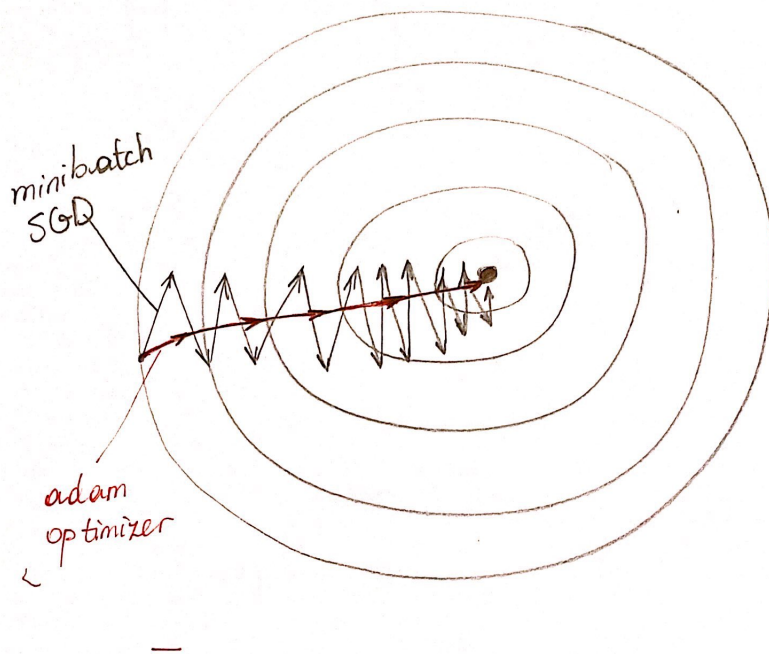 minibatch
SGD
adam
optimizer